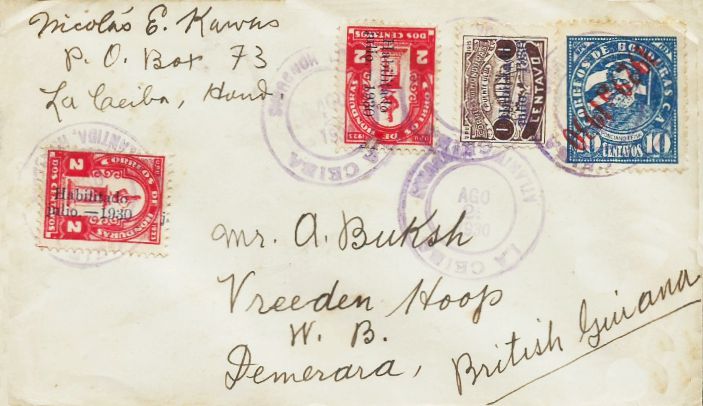 Nicolás E. Kawas
P. O. Box 73
La Ceiba, Hond.
CORREOS DE HONDURAS
2 2
DOS CENTAVOS
Habilitado
julio 1930
1 1
CENTAVO
CORREOS DE HONDURAS C.A.
10 10
CENTAVOS
CORREOS DE HONDURAS
2 2
DOS CENTAVOS
Habilitado
julio.—1930
LA CEIBA
AGO
1930
LA CEIBA
Mr. A. Buksh
Vreeden Hoop
W. B.
Demerara,
British Guiana